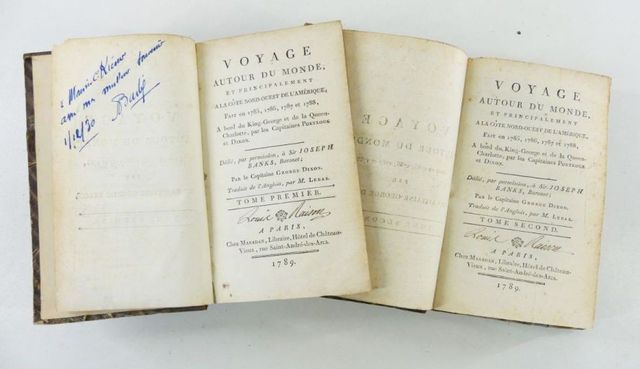 à Maurice
avec mon meilleur souvenir
1/12/30
VOYAGE
AUTOUR DU MONDE,
ET PRINCIPALEMENT
A LA CÔTE NORD-OUEST DE L'AMÉRIQUE,
FAIT EN 1785, 1786, 1787 et 1788,
A bord du King-George et de la Queen-
Charlotte, par les Capitaines PORTLOCK
et DIXON.
Dédié, par permission, à Sir JOSEPH
BANKS, Baronet;
Par le Capitaine GEORGE DIXON.
Traduit de l'Anglois, par M. LEBAS.
TOME PREMIER.
Louis Raison
A PARIS,
Chez MARADAN, Libraire, Hôtel de Château-
Vieux, rue Saint-André-des-Arcs.
1789.
VOYAGE
AUTOUR DU MONDE,
ET PRINCIPALEMENT
A LA CÔTE NORD-OUEST DE L'AMÉRIQUE,
FAIT EN 1785, 1786, 1787 et 1788,
A bord du King-George et de la Queen-
Charlotte, par les Capitaines PORTLOCK
et DIXON.
Dédié, par permission, à Sir JOSEPH
BANKS, Baronet;
Par le Capitaine GEORGE DIXON.
Traduit de l'Anglois, par M. LEBAS.
TOME SECOND.
Louis Raison
A PARIS,
Chez MARADAN, Libraire, Hôtel de Château-
Vieux, rue Saint-André-des-Arcs.
1789.